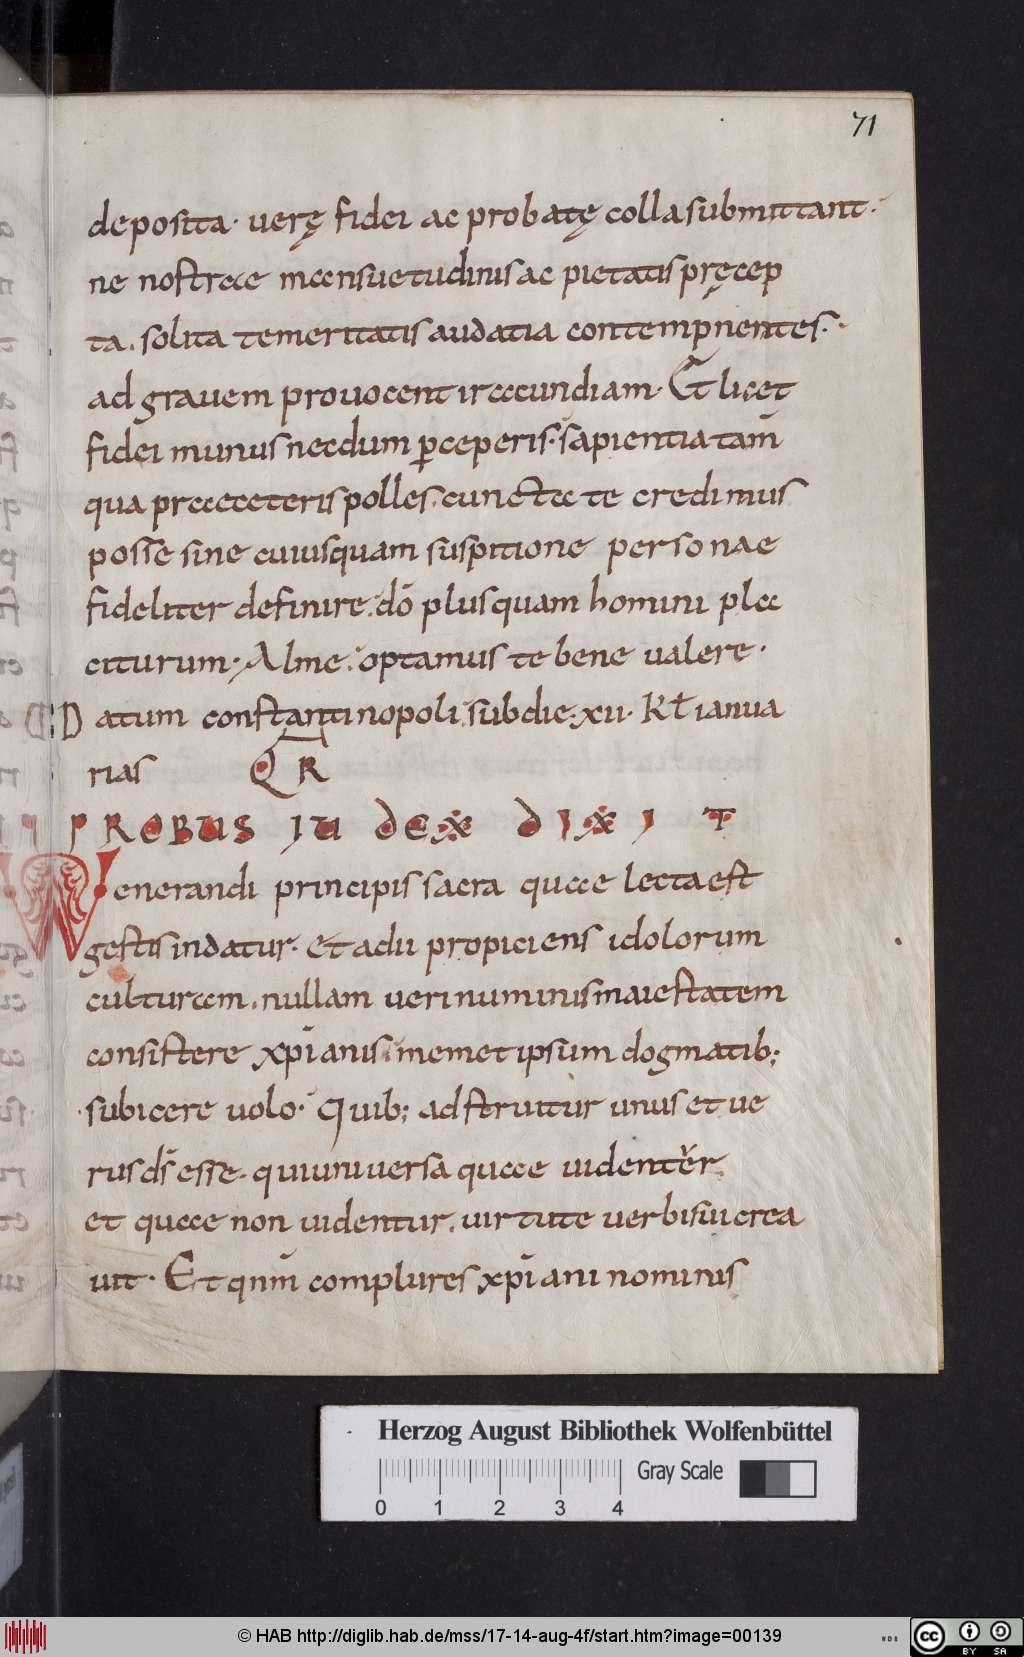 71
deposita· uerę fidei ac probatę colla submittant·
ne nostrae mansuetudinis ac pietatis pręcep
ta. solita temeritatis audatia contempnentes·
ad grauem prouocent iracundiam· Et licet
fidei munus necdum ꝑceperis· sapientia tam̄
qua prae ceteris polles. cuncta te credimus
posse sine cuiusquam suspitione personae
fideliter definire. dō plusquam homini pla
citurum· Alme. optamus te bene ualere·
Datum constantinopoli sub die· xii· Kł ianua
rias QR
PROBUS IUDEX DIXIT
Venerandi principis sacra quae lecta est
gestis indatur. et adii propiciens idolorum
culturam. nullam ueri numinis maiestatem
consistere xp̄ianis memetipsum dogmatib;
subicere uolo· Quib; adstruitur unus et ue
rus ds̄ esse. qui uniuersa quae uidentur
et quae non uidentur. uirtute uerbi sui crea
uit· Et qnm̄ complures xp̄iani nominis
Herzog August Bibliothek Wolfenbüttel
Gray Scale
0 1 2 3 4
© HAB http://diglib.hab.de/mss/17-14-aug-4f/start.htm?image=00139
WDB
cc BY SA